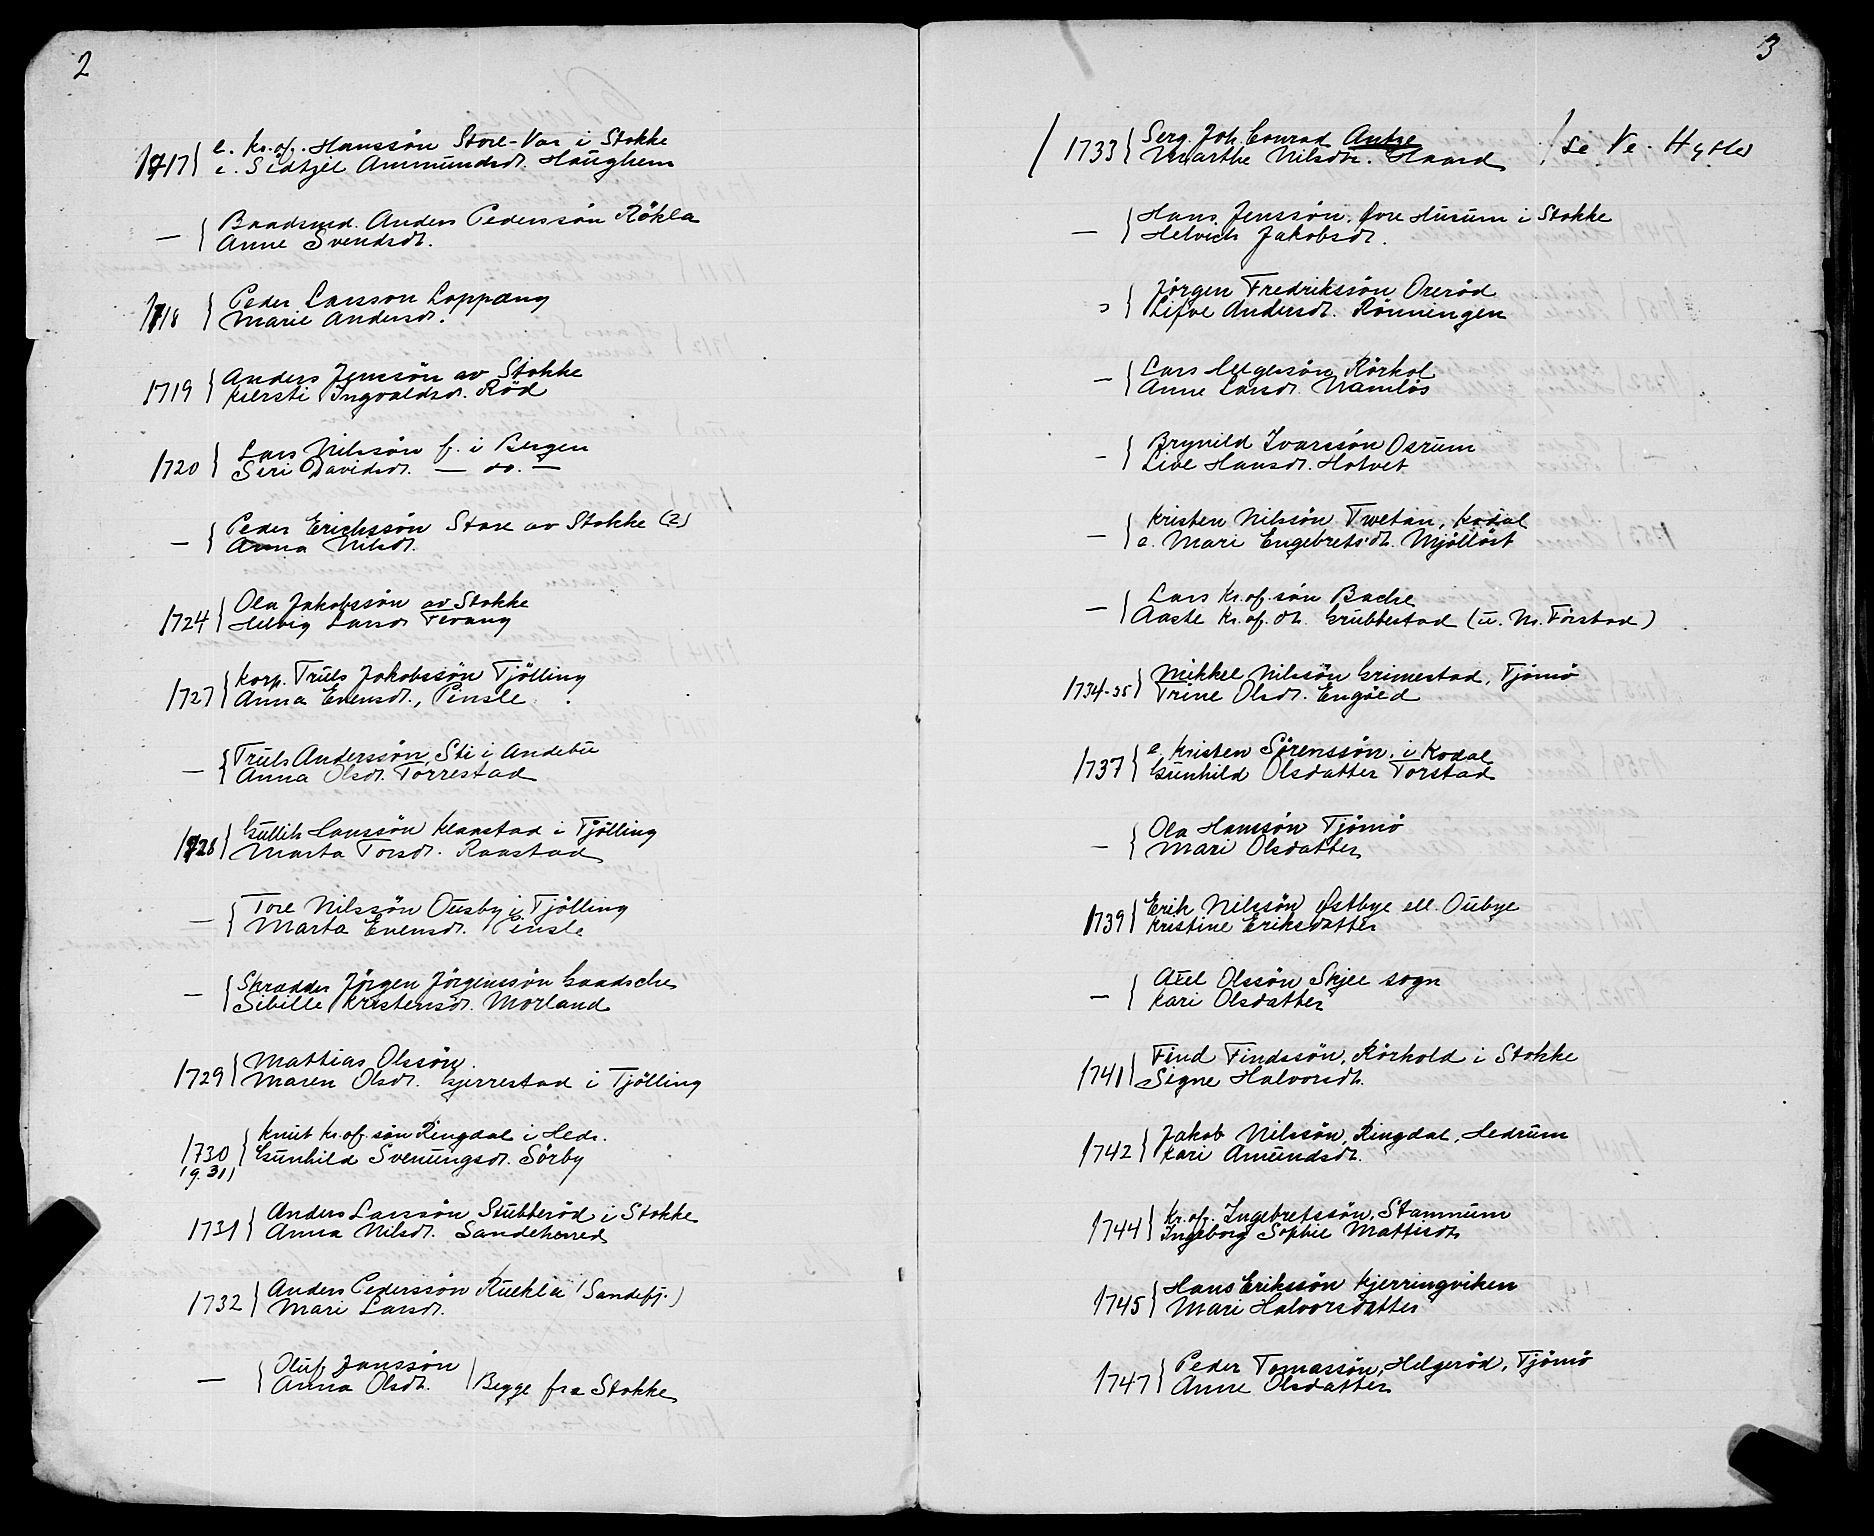 2
1717 e. Kr.of. Hanssön Store-Var i Stokke
e. Sidtzel Ammundsdt. Haughem
— Baadsmd. Anders Pederssön Rökla
Anne Svendsdt.
1718 Peder Larsson Loppang
Marie Andersdt.
1719 Anders Jenssön av Stokke
Kiersti Ingvaldsdt. Röd
1720 Lars Nilssön f. i Bergen
Seri Davidsdt. — do. —
— Peder Erichssön Stare av Stokke (2)
Anna Nilsdt.
1724 Ola Jakobssön av Stokke
Helvig Larsdt Tevang
1727 Korp. Truls Jakobssön Tjölling
Anna Evensdt., Pinsle
— Truls Anderssön, Sti i Andebu
Anna Olsdt. Torrestad
1728 Gullik Hanssön Klaastad i Tjölling
Marta Torsdt. Raastad
— Tore Nilssön Ousby i Tjölling
Marta Evensdt. Pinsle
— Skrædder Jörgen Jörgenssön
Sibille Kristensdt. Morland
1729 Mattias Olssön.
Maren Olsdt. Gjerrestad i Tjölling
1730 Knut Kr.of.sön Ringdal i Hedr.
(g. 31) Gunhild Svenungsdt. Sörby
1731 Anders Larssön Stubberöd i Stokke
Anna Nilsdt. Sandeherred
1732 Anders Pederssön Ruekla (Sandefj.)
Mari Larsdt.
— Oluf Janssön
Anna Olsdt. Begge fra Stokke
3
1733 Serg. Joh. Conrad Antze / se Ve. Hytte
Marthe Nilsdtr. Haard
— Hans Jenssön, Övre Husum i Stokke
Helvich Jakobsdt.
Jörgen Fredrikssön Oreröd
Lifve Andersdt. Rönningen
— Lars Helgessön Rörkol
Anne Larsdt. Namlös
— Brynild Ivarssön Osrum
Live Hansdt. Holvet
— Kristen Nilssön Tvetan, Kodal
e. Mari Engebretsdt. Mjölløst
— Lars Kr.of.sön Backe
Aaste Kr.of.dt. Grubbestad (u. M. Forstad)
1734-35 Mikkel Nilssön Grimestad, Tjömö
Trine Olsdt. Engöed
1737 e. Kristen Sörenssön, i Kodal
Gunhild Olsdatter Torstad
— Ola Hanssön Tjömö
Mari Olsdatter
1739 Erik Nilssön Østbye ell. Oubye
Kristine Eriksdatter
— Axel Olssön Skjee sogn
Kari Olsdatter
1741 Find Findssön, Rörhold i Stokke
Signe Halvorsdt.
1742 Jakob Nilssön, Ringdal, Hedrum
Kari Amundsdt.
1744 Kr.of. Ingebretssön, Stamnum
Ingeborg Sophie Mattisdt
1745 Hans Erikssön Kjerringviken
Mari Halvorsdatter
1747 Peder Tomassön, Helgeröd, Tjömö
Anne Olsdatter